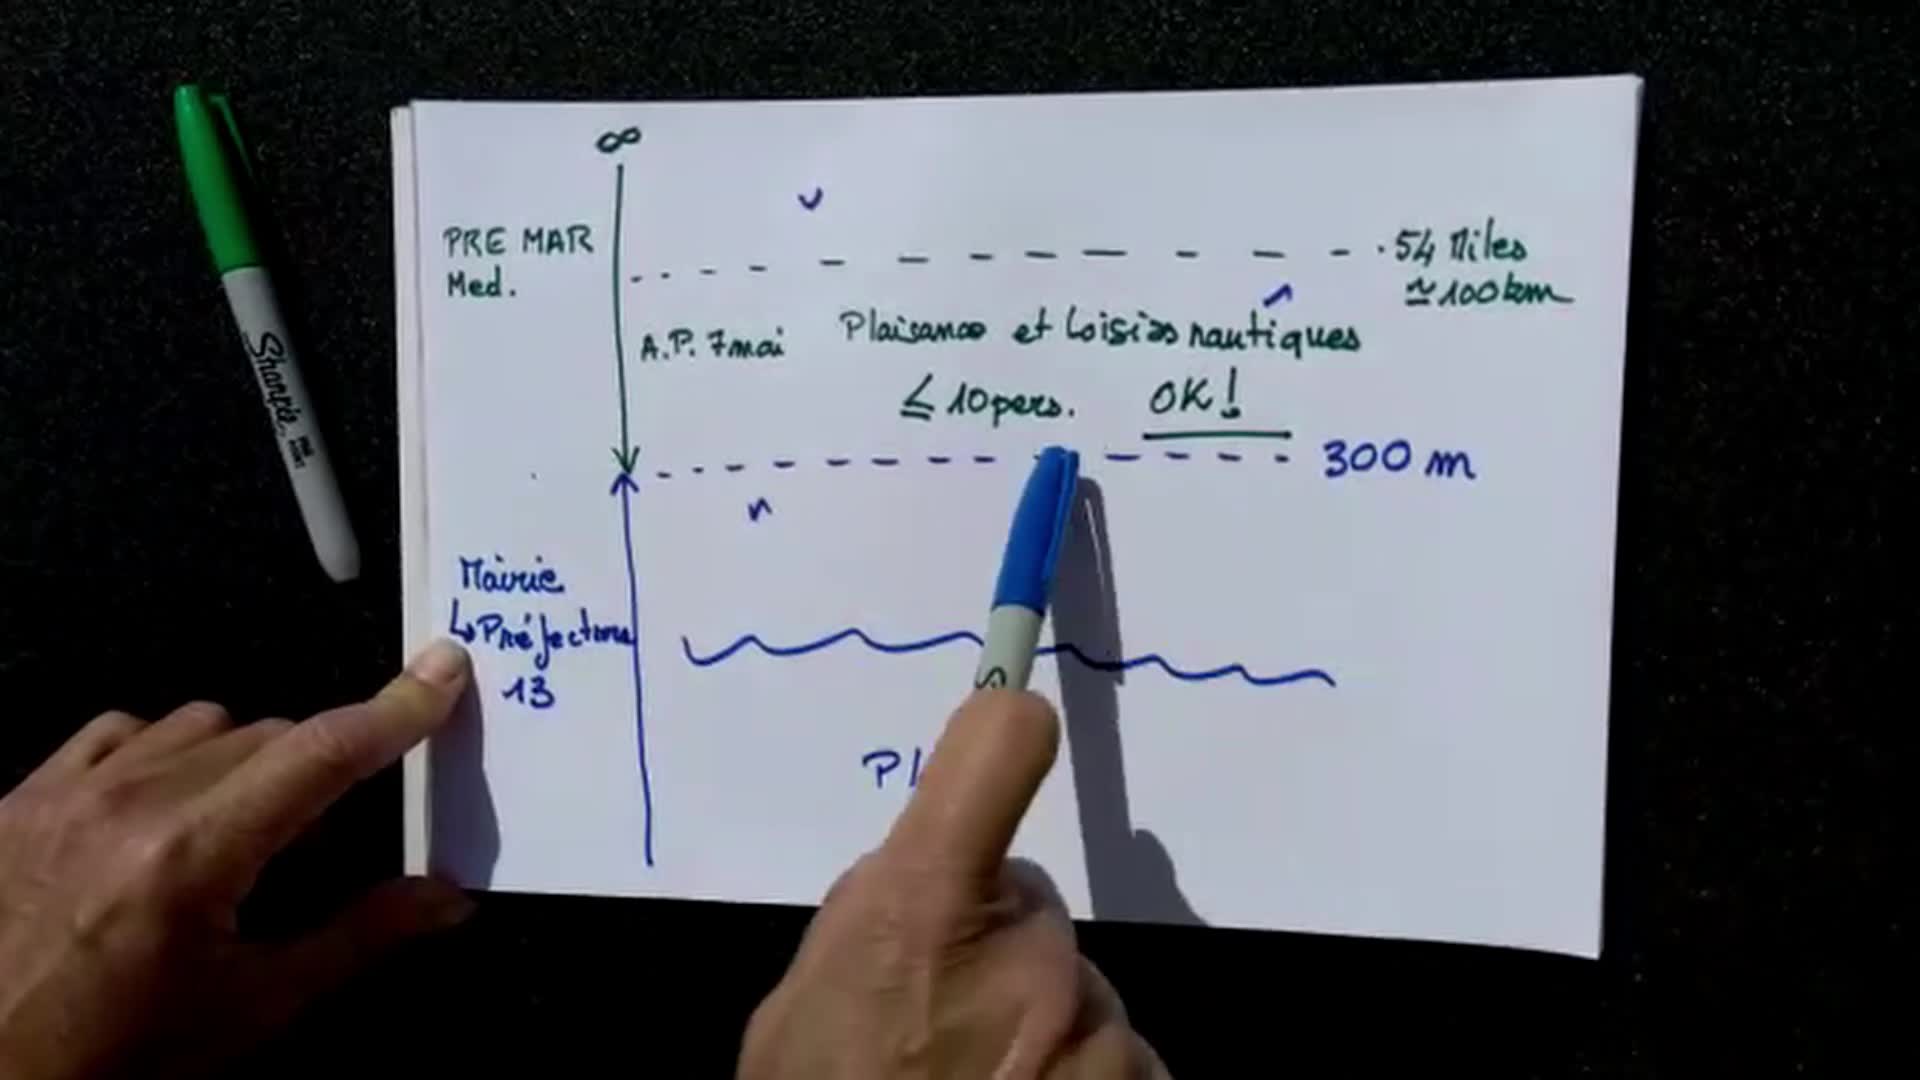 ∞
PRE MAR
Med.
54 Miles
≃ 100 km
A.P. 7 mai
Plaisance et Loisirs nautiques
≤ 10 pers. OK!
300 m
Mairie
↳ Préfecture
13
Sharpie